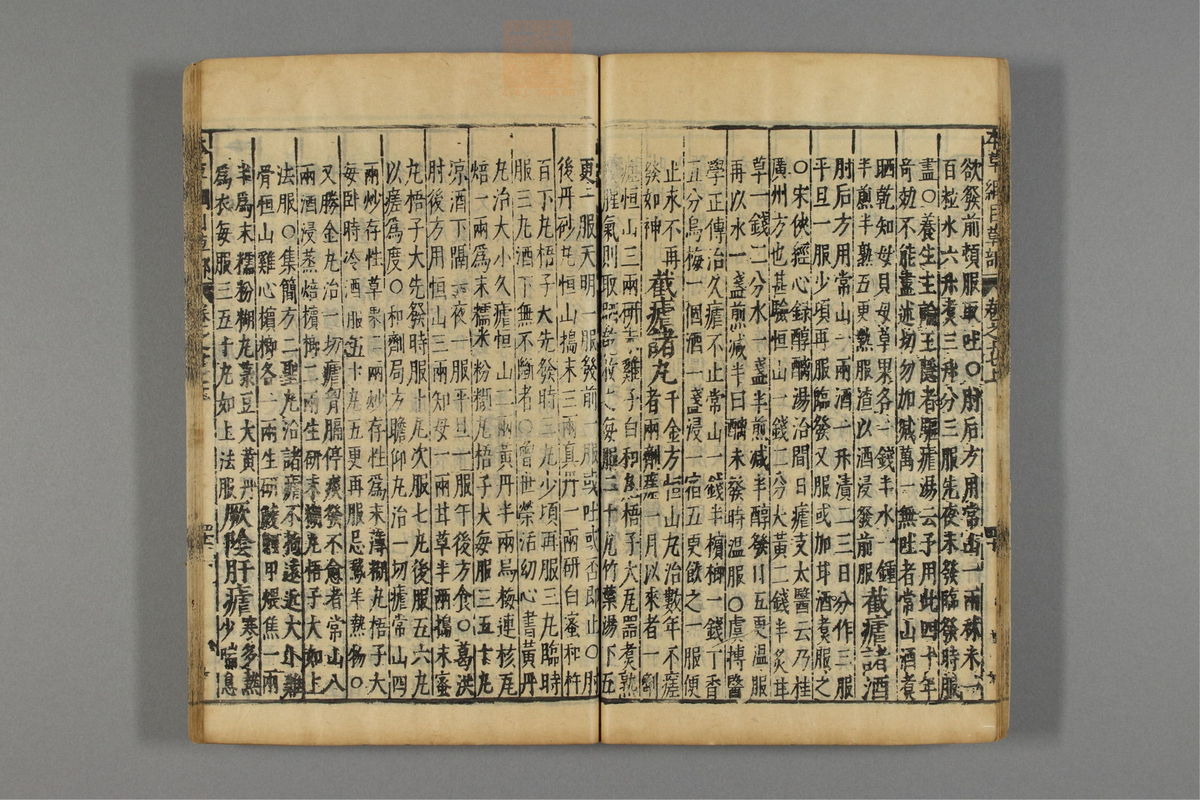 本草綱目草部
欲發前頓服取吐○肘后方用常山一兩秫米一
百粒水六升煮三升分三服先夜未發臨發時服
盡○養生主論王隱者驅瘧湯云予用此四十年
奇効不能盡述切勿加減萬一無吐者常山酒煮
晒乾知母貝母草果各一錢半水一鍾
半煎半熟五更熱服渣以酒浸發前服 截瘧諸酒
肘后方用常山一兩酒一升漬二三日分作三服
平旦一服少頃再服臨發又服或加甘酒煮服之
○宋俠經心録醇醨湯治間日瘧支太醫云乃桂
廣州方也甚驗恒山一錢二分大黃二錢半炙甘
草一錢二分水一盞半煎減半曰醇發日五更温服
再以水一盞煎減半曰醨未發時温服○虞摶醫
學正傳治久瘧不止常山一錢半檳榔一錢丁香
五分烏梅一個酒一盞浸一宿五更飲之一服便
止永不再
發如神 截瘧諸丸 千金方恒山丸治數年不瘥
者兩劑瘥一月以來者一劑
瘥恒山三兩研末雞子白和丸梧子大瓦器煮熟
殺腥氣則取晒乾收之每服二十丸竹葉湯下五
更一服天明一服發前一服或吐或否即止○肘
後丹砂丸恒山搗末三兩真丹一兩研白蜜和杵
百下丸梧子大先發時三丸少頃再服三丸臨時
服三丸酒下無不斷者○曾世榮治幼心書黃丹
丸治大小久瘧恒山二兩黃丹半兩烏梅連核瓦
焙一兩爲末糯米粉糊丸梧子大每服三五十丸
凉酒下隔一夜一服平旦一服午後方食○葛洪
肘後方用恒山三兩知母一兩甘草半兩搗末蜜
丸梧子大先發時服十丸次服七丸後服五六丸
以瘥爲度○和劑局方瞻仰丸治一切瘧常山四
兩炒存性草果二兩炒存性爲末薄糊丸梧子大
每卧時冷酒服五十丸五更再服忌鵝羊熱物○
又勝金丸治一切瘧胷膈停痰發不愈者常山八
兩酒浸蒸焙檳榔二兩生研末糊丸梧子大如上
法服○集簡方二聖丸治諸瘧不拘遠近大小雞
骨恒山雞心檳榔各一兩生研鯪鯉甲煨焦一兩
半爲末糯粉糊丸菉豆大黃丹
爲衣每服三五十丸如上法服 厥陰肝瘧 寒多熱
少喘息